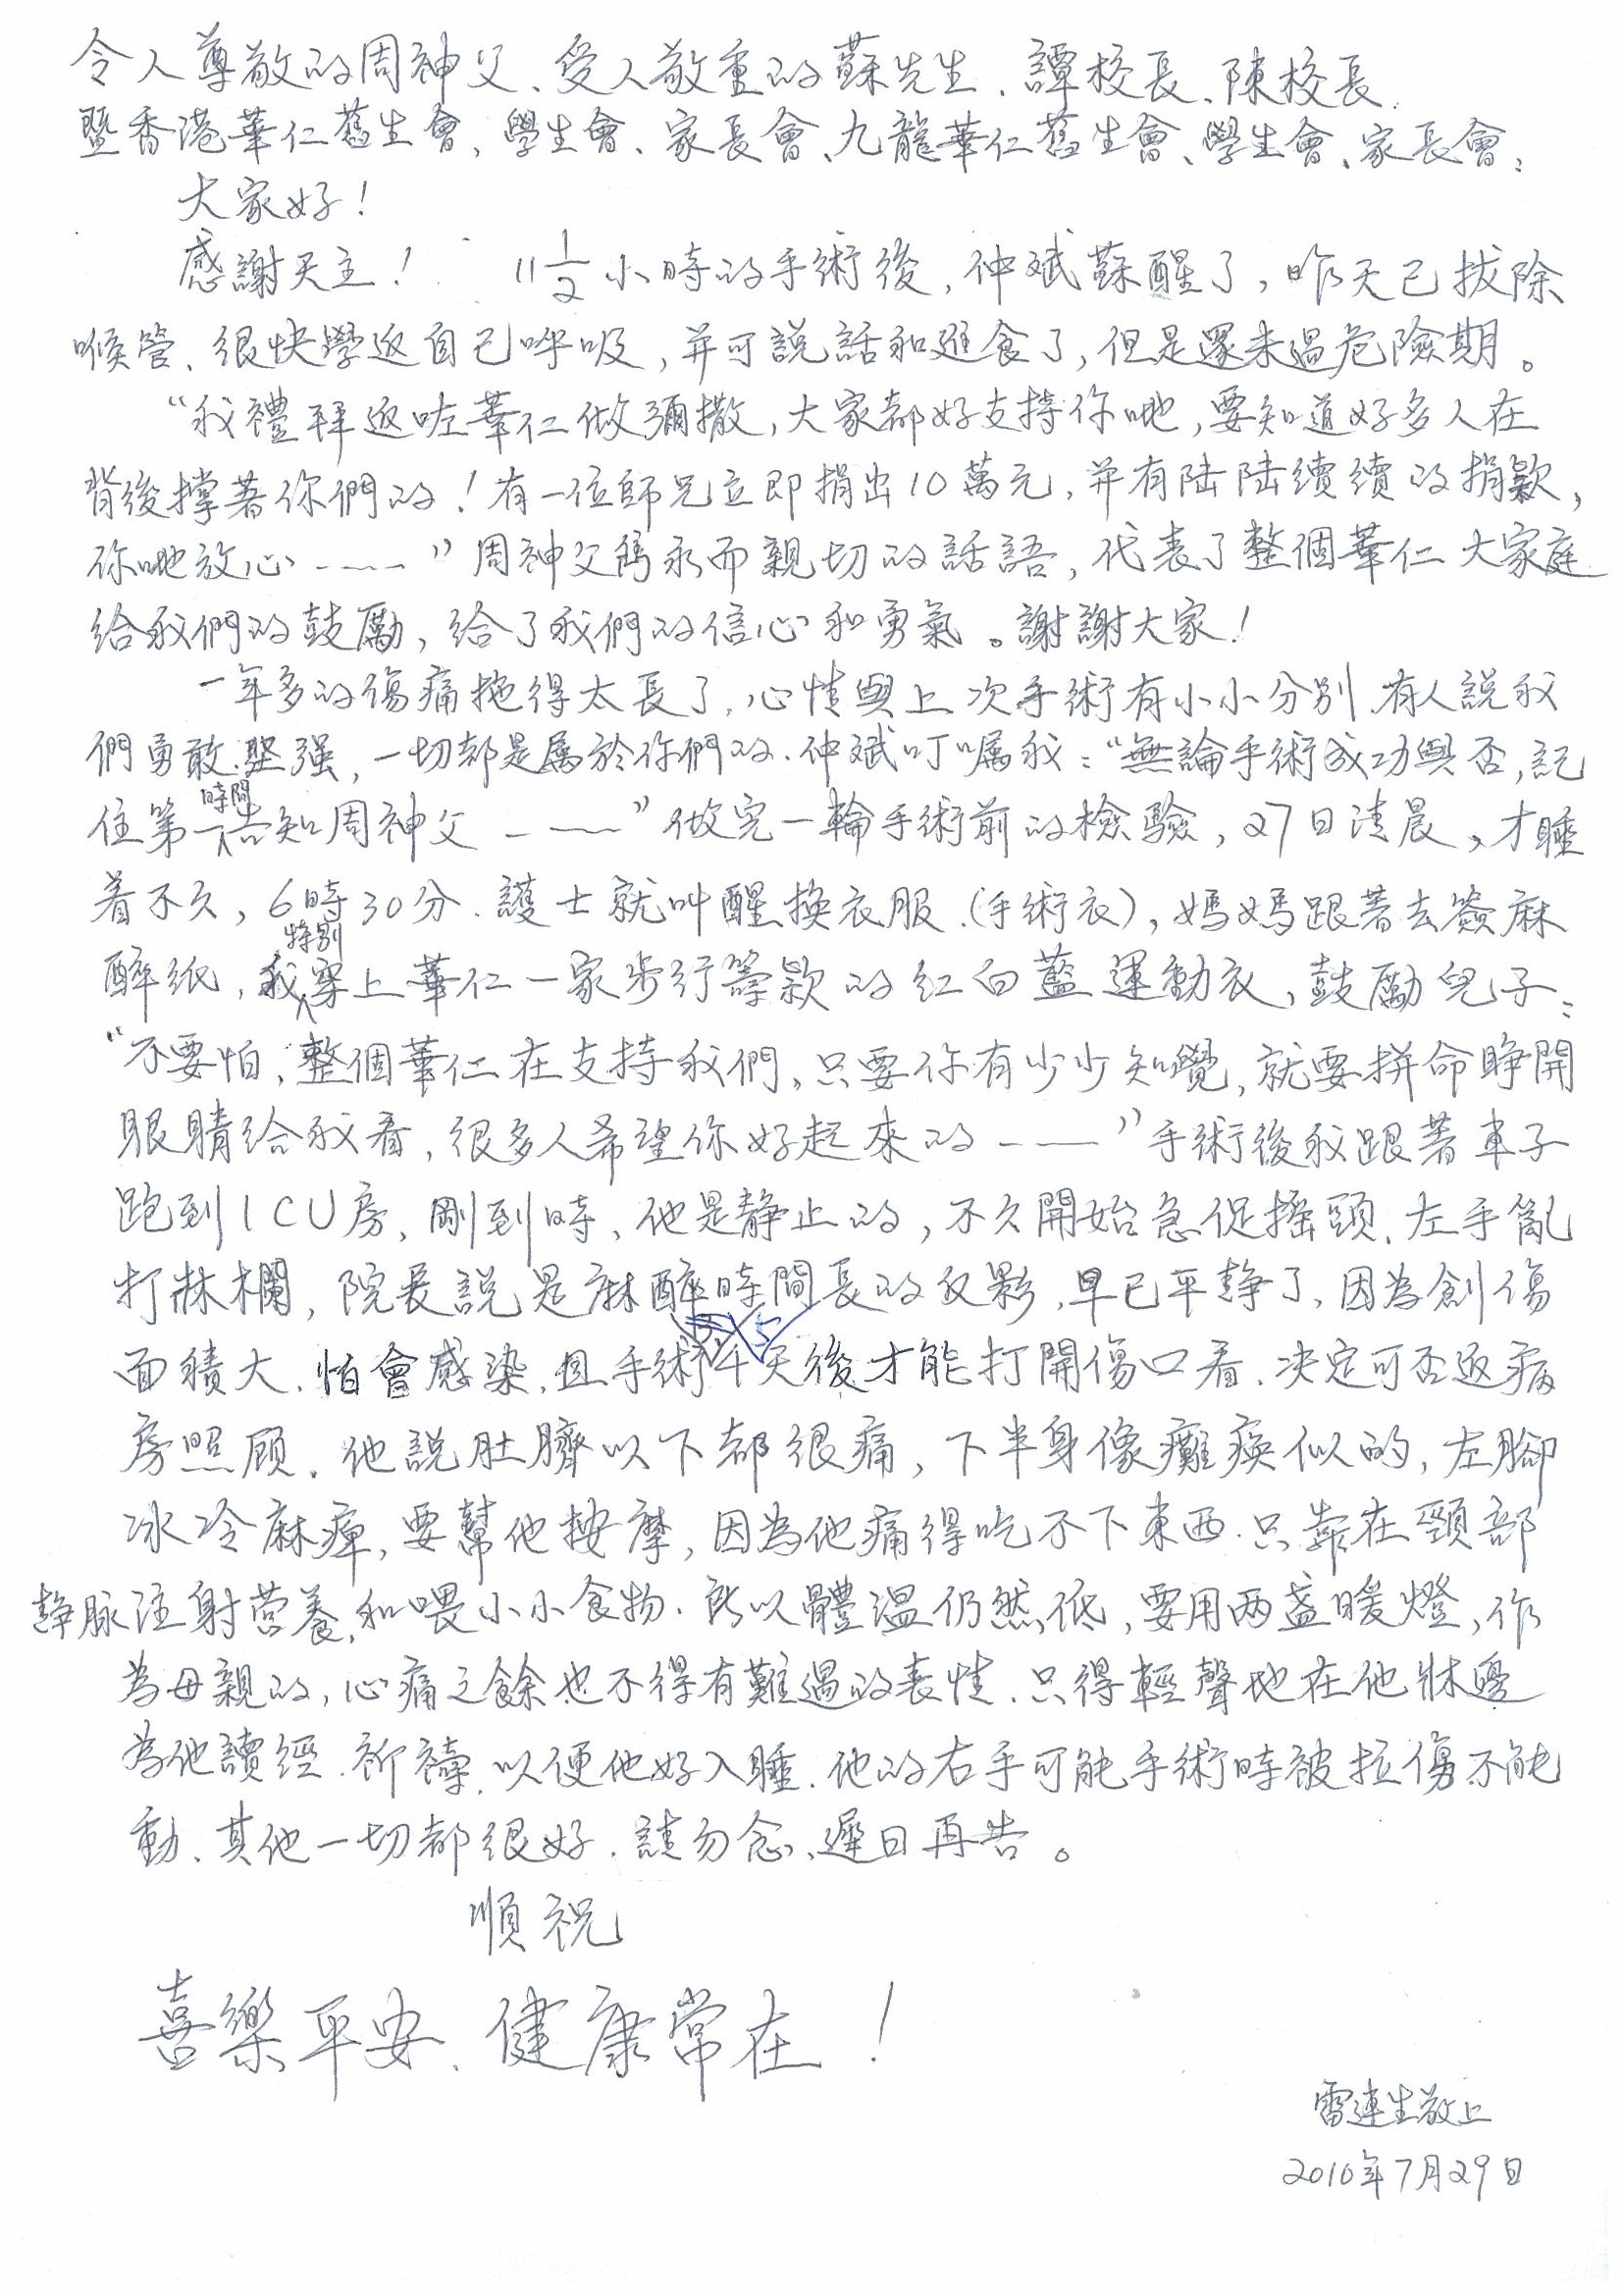 令人尊敬的周神父、受人敬重的蘇先生、譚校長、陳校長
暨香港華仁舊生會、學生會、家長會、九龍華仁舊生會、學生會、家長會：
大家好！
感謝天主！ 11 1/2 小時的手術後，仲斌蘇醒了，昨天已拔除
喉管、很快學返自己呼吸，并可説話和進食了，但是還未過危險期。
“我禮拜返咗華仁做彌撒，大家都好支持你哋，要知道好多人在
背後撐著你們的！有一位師兄立即捐出10萬元，并有陆陸續續的捐款，
你哋放心----”周神父 而親切的話語，代表了整個華仁大家庭
給我們的鼓勵，給了我們的信心和勇氣。謝謝大家！
一年多的傷痛拖得太長了，心情與上次手術有小小分別、有人説我
們勇敢堅强，一切都是屬於你們的．仲斌叮囑我：“無論手術成功與否，記
住第一時間告知周神父----”做完一輪手術前的檢驗，27日清晨，才睡
着不久，6時30分．護士就叫醒換衣服（手術衣），媽媽跟著去簽麻
醉纸，我特别穿上華仁一家步行籌款的红白藍運動衣，鼓勵兒子：
“不要怕，整個華仁在支持我們，只要你有少少知覺，就要拼命睁開
眼睛给我看，很多人希望你好起來的----”手術後我跟著車子
跑到ICU房，剛到時，他是静止的，不久開始急促搖頭．左手亂
打牀欄，院長説是麻醉時間長的反影，早已平静了，因為創傷
面積大．怕會感染，且手術4 5天後才能打開傷口看．决定可否返病
房照顾．他説肚臍以下都很痛，下半身像癱瘓似的，左腳
冰冷麻痺，要幫他按摩，因為他痛得吃不下東西．只靠在頸部
静脈注射营養，和喂小小食物．所以體温仍然低，要用两盞暖燈，作
為母親的，心痛之餘也不得有難過的表情．只得輕聲地在他牀邊
為他讀經．祈禱．以便他好入睡．他的右手可能手術時被拉傷不能
動、其他一切都很好．請勿念，遲日再告。
順祝
喜樂平安、健康常在！
雷連生敬上
2010年7月29日